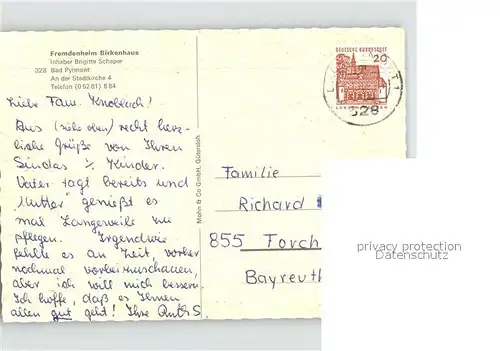 Fremdenheim Birkenhaus
Inhaber Brigitte Schaper
328 Bad Pyrmont
An der Stadtkirche 4
Telefon (05281) 684
Liebe Fam. Knoblach!
Aus (siehe oben) recht herz-
liche Grüße von Ihren
Sindas ½ Kinder.
Vater sagt bereits und
"Mutter" genießt es
mal Langeweile zu
pflegen. Irgendwie
fehlte es an Zeit, vorher
nochmal vorbeizuschauen,
aber ich will mich bessern.
Ich hoffe, daß es Ihnen
allen gut geht! Ihre Ruth S.
Mohn & Co GmbH, Gütersloh
DEUTSCHE BUNDESPOST
20
328
Familie
Richard
855 Forch
Bayreuth
privacy protection
Datenschutz